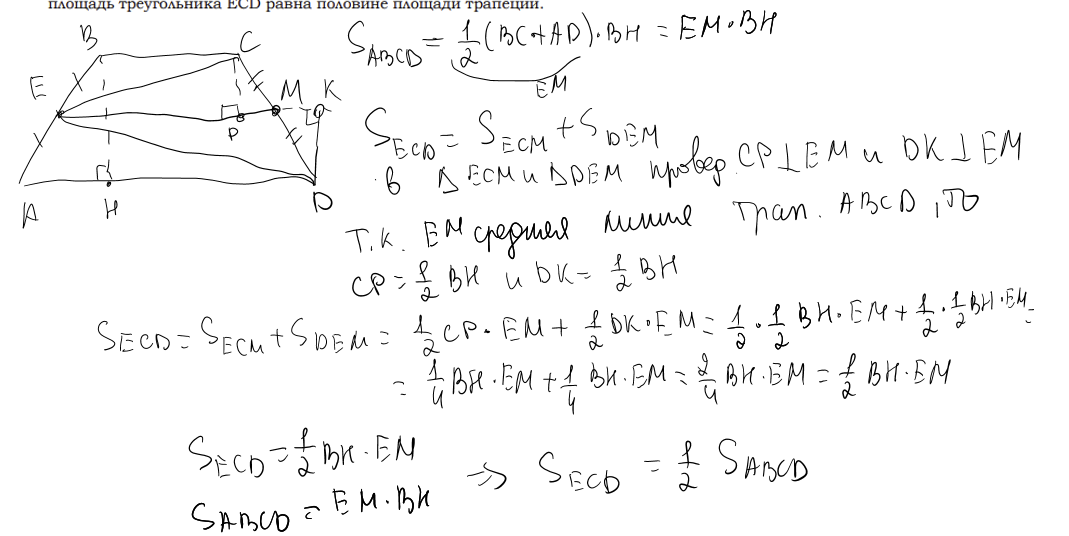 площадь треугольника ECD равна половине площади трапеции.
B C E M K P A H D
S_ABCD = 1/2 (BC+AD)·BH = EM·BH
EM
S_ECD = S_ECM + S_DEM
в Δ ECM и Δ DEM провед. CP⊥EM и DK⊥EM
Т.К. EM средняя линия трап. ABCD, то
CP = 1/2 BH и DK = 1/2 BH
S_ECD = S_ECM + S_DEM = 1/2 CP·EM + 1/2 DK·EM = 1/2·1/2 BH·EM + 1/2·1/2 BH·EM =
= 1/4 BH·EM + 1/4 BH·EM = 2/4 BH·EM = 1/2 BH·EM
S_ECD = 1/2 BH·EM
S_ABCD = EM·BH
=> S_ECD = 1/2 S_ABCD